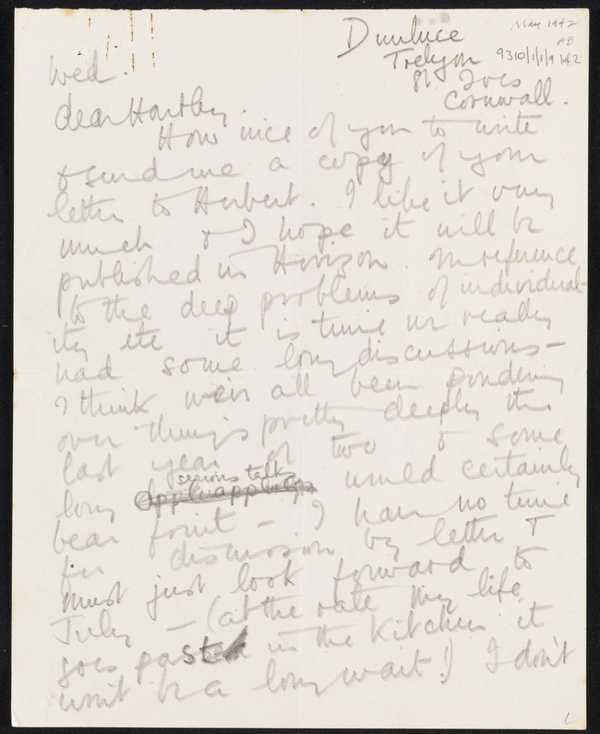 May 1942
AB
9310/1/1/9 1of2
Dunluce
Trelyon
St Ives
Cornwall.
Wed.
dear Hartley.
How nice of you to write
& send me a copy of your
letter to Herbert. I like it very
much & I hope it will be
published in Horizon. In reference
to the deep problems of individual-
ity etc it is time we really
had some long discussions -
I think we've all been pondering
over things pretty deeply this
last year or two & some
long serious talks would certainly
bear fruit - I have no time
for discussion by letter I
must just look forward to
July - (at the rate my life
goes past in the kitchen it
wont be a long wait!) I don't